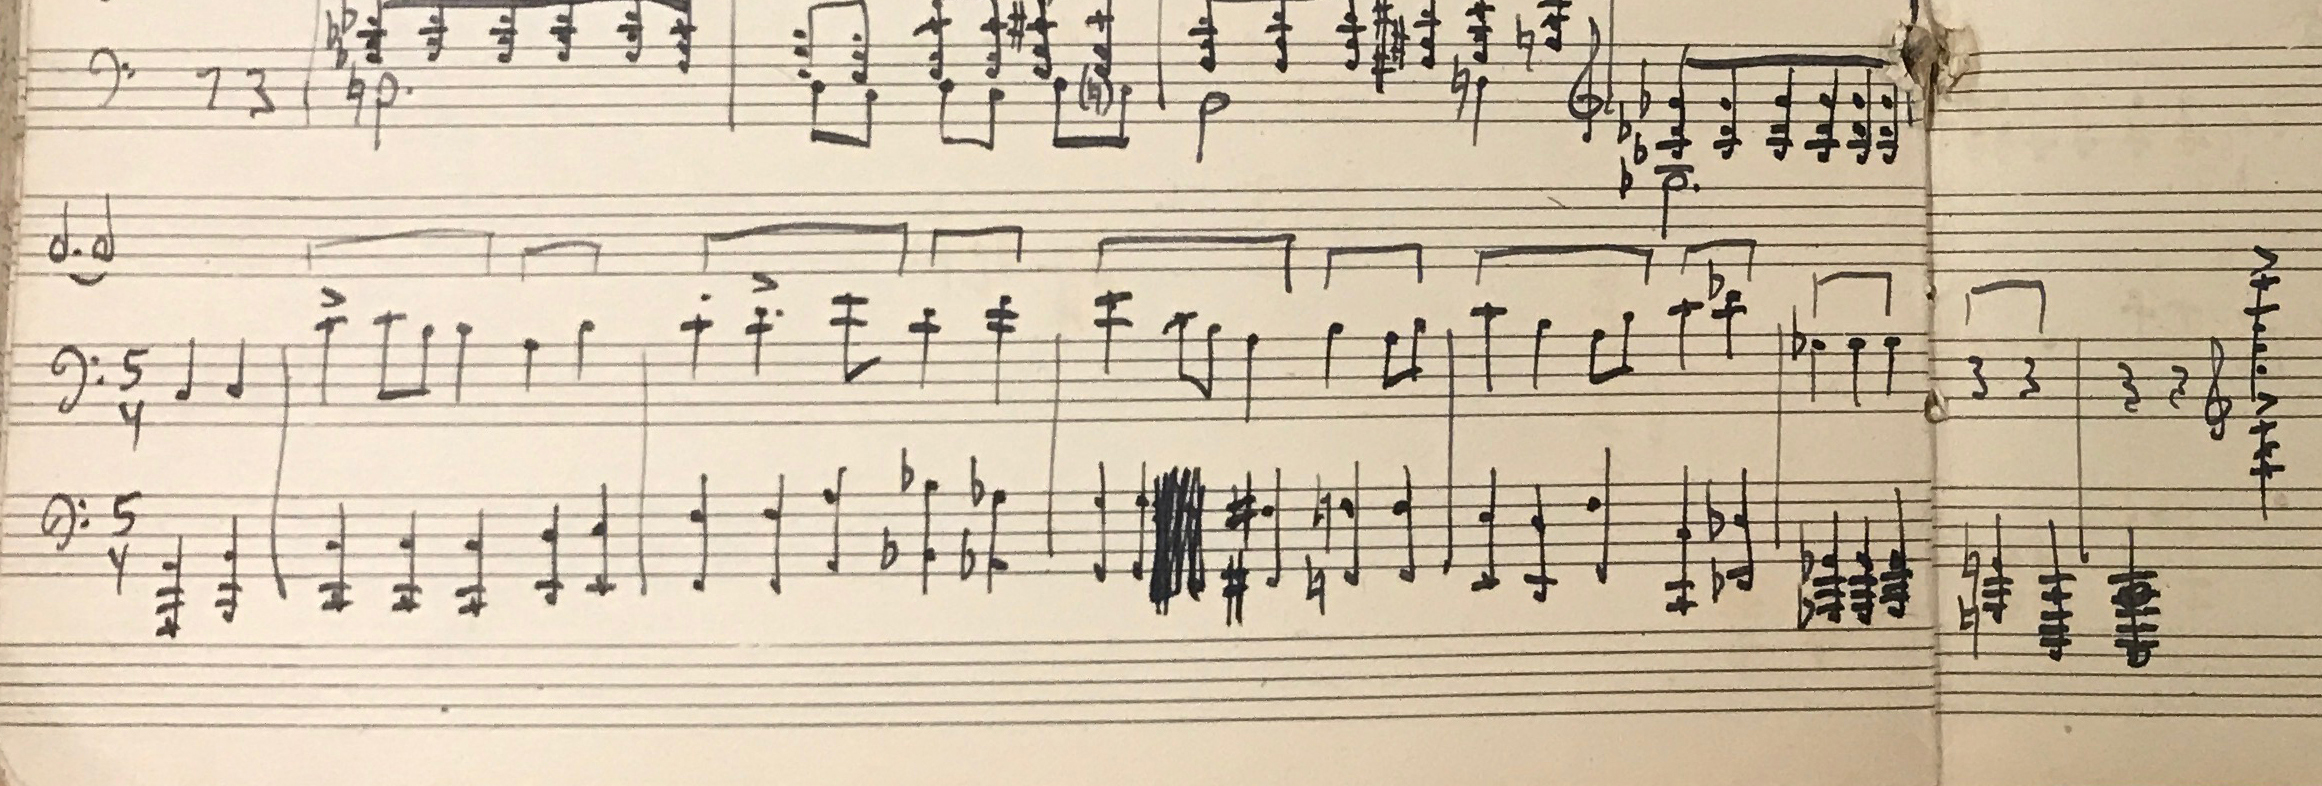 5
4
5
4